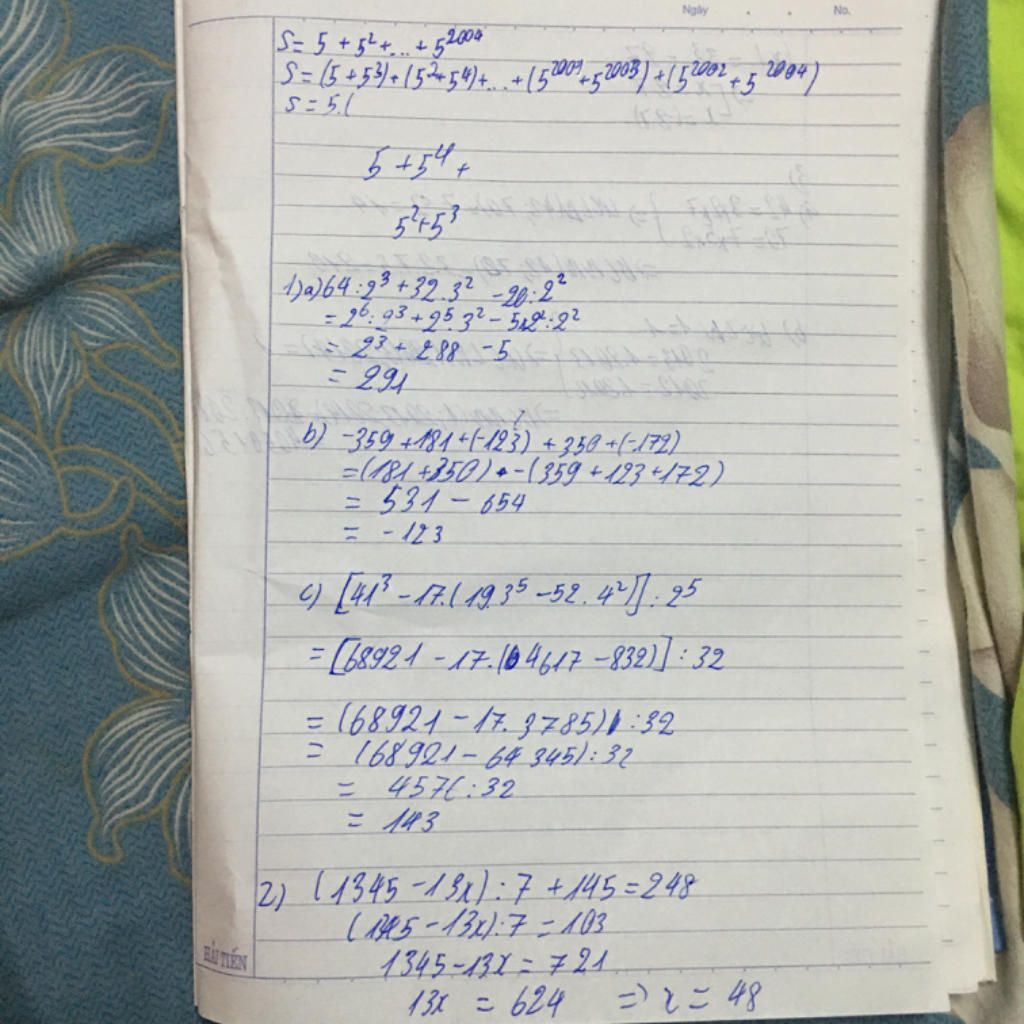 Ngày . . No.
S = 5 + 5² + ... + 5²⁰⁰⁴
S = (5 + 5³) + (5² + 5⁴) + ... + (5²⁰⁰¹ + 5²⁰⁰³) + (5²⁰⁰² + 5²⁰⁰⁴)
S = 5.(
5 + 5⁴ +
5² + 5³
1) a) 64 : 2³ + 32 . 3² - 20 : 2²
= 2⁶ : 2³ + 2⁵ . 3² - 5.2² : 2²
= 2³ + 288 - 5
= 291
b) -359 + 181 + (-123) + 350 + (-172)
= (181 + 350) - (359 + 123 + 172)
= 531 - 654
= -123
c) [41³ - 17.(19.3⁵ - 52 . 4²)] : 2⁵
= [68921 - 17.(4617 - 832)] : 32
= (68921 - 17.3785) : 32
= (68921 - 64345) : 32
= 457 : 32
= 143
2) (1345 - 13x) : 7 + 145 = 248
(1345 - 13x) : 7 = 103
1345 - 13x = 721
HẢI TIẾN
13x = 624 => x = 48